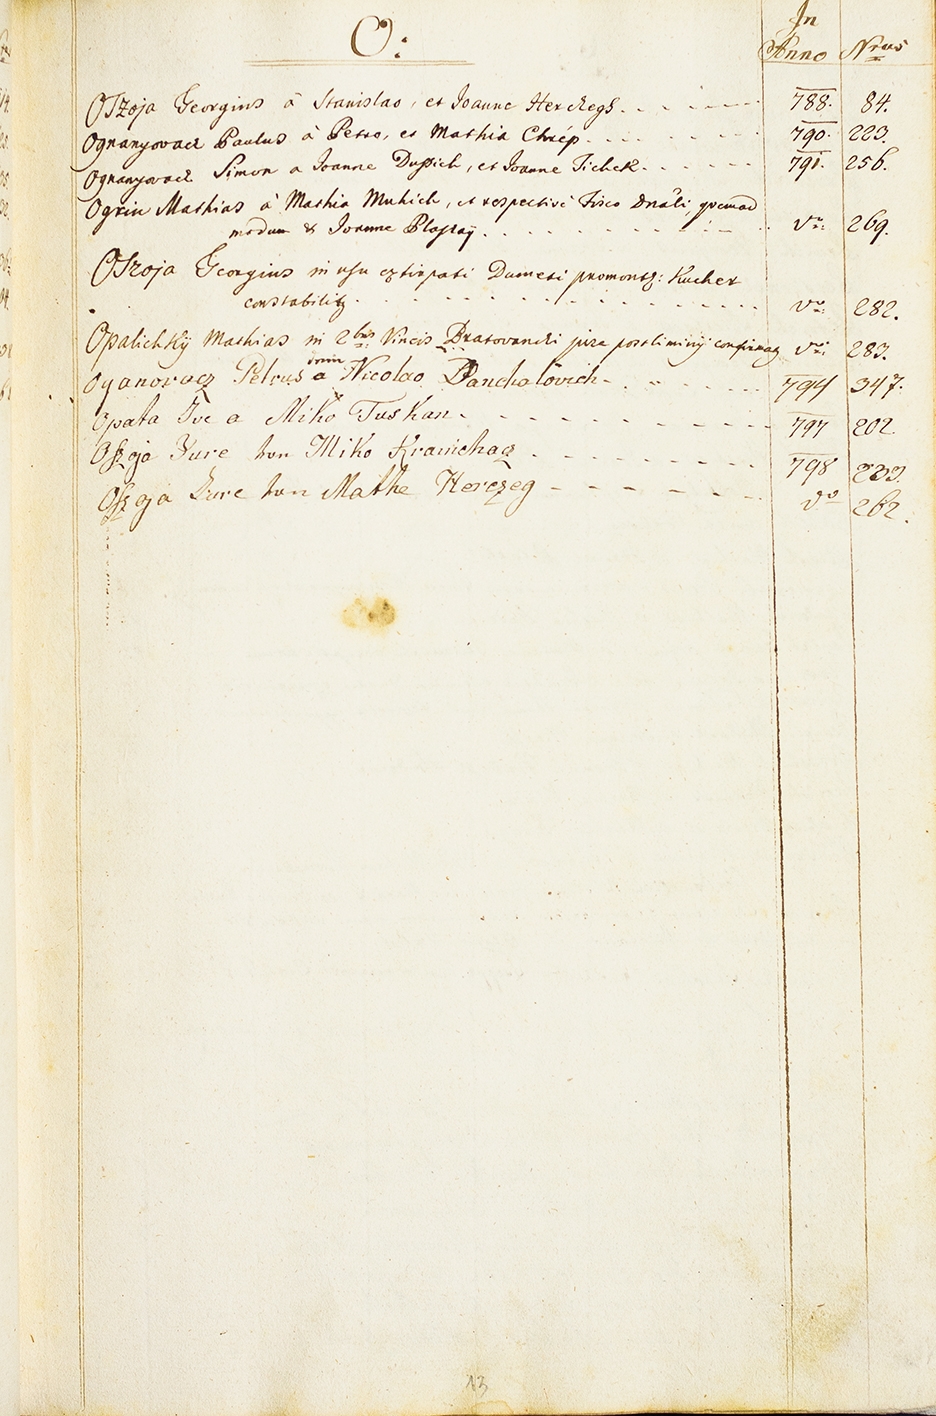 O:
In Anno
Nrus
Oszoja Georgius â Stanislao, et Joanne Herczegh 788. 84.
Ognanyovacz Paulus â Petro, et Mathia Chrép 790. 223.
Ognanyovacz Simon a Joanne Dussich, et Joanne Tichek 791. 256.
Ogrin Mathias â Mathia Muhich, et respectivè Fisco Dnali, quemad
modum & Joanne Plastaÿ vo: 269.
Oszoja Georgius in usu extirpati Dumeti promont: Kucher
constabilitz vo: 282.
Opalichkÿ Mathias in 2bus Vineis Bratovanchi jure postliminÿ confirmaz vo: 283.
Oyanovacz Petrus a Nicolao Banchalovich 794 347.
Opata Ive a Miko Tuskan 797 202.
Oszgja Jure von Miko Krainchaz 798 223.
Oszgja Jure von Mathe Herczeg do 262.
13